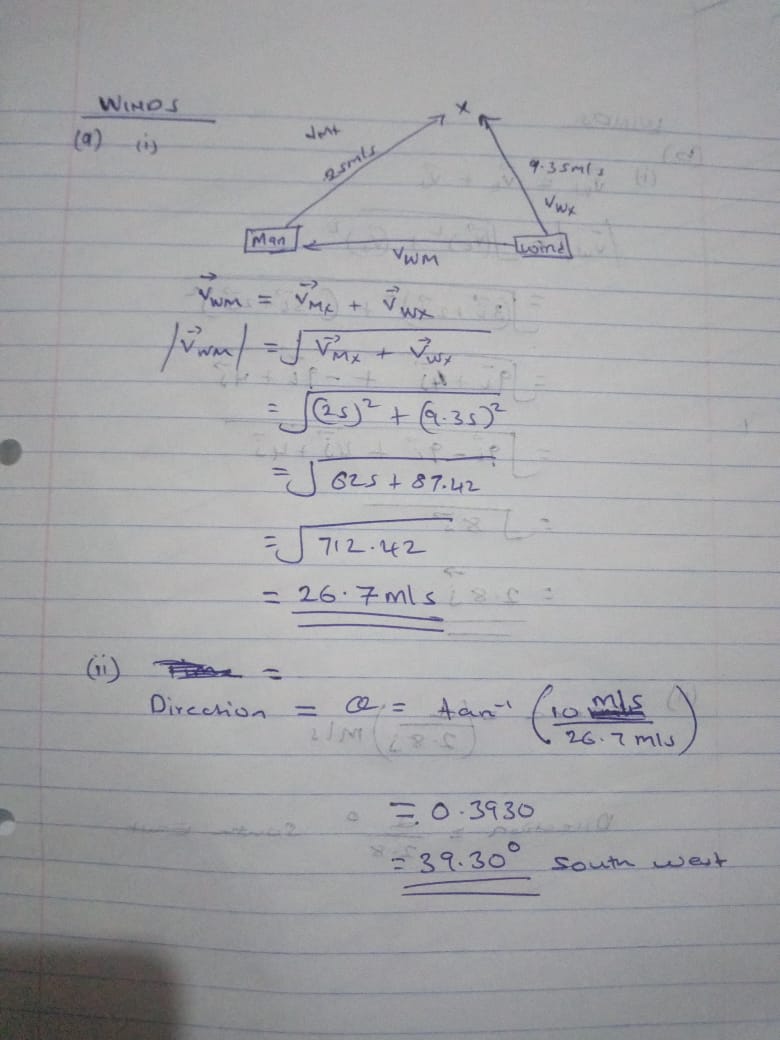 WINDS
(a) (i)
x
25m/s
9.35m/s
VWX
Man
VWM
Wind
V⃗WM = V⃗MX + V⃗WX
|V⃗WM| = √V⃗MX + V⃗WX
= √(25)² + (9.35)²
= √625 + 87.42
= √712.42
= 26.7 m/s
(ii) =
Direction = Q = tan⁻¹ (10 m/s / 26.7 m/s)
= 0.3930
= 39.30° South west